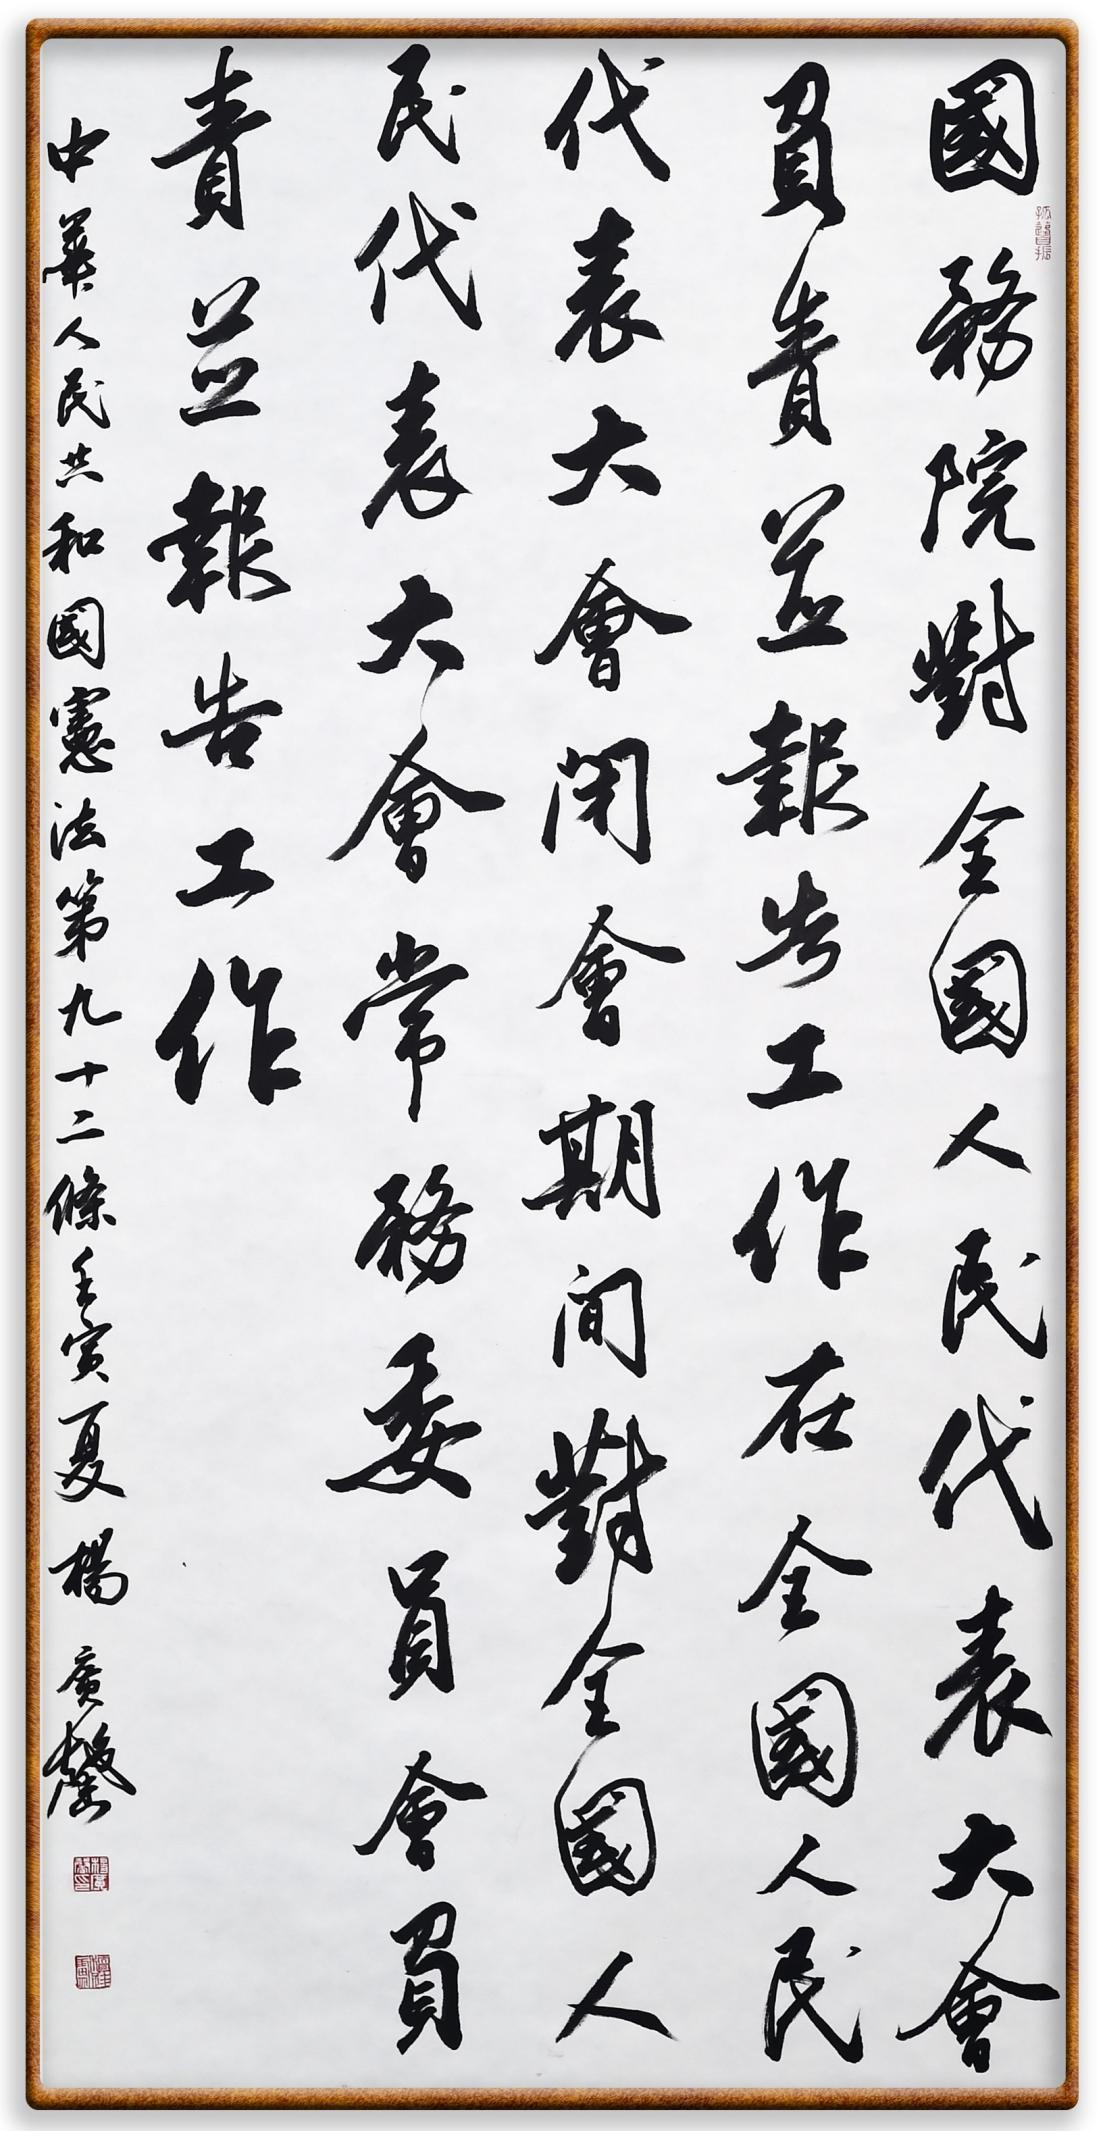 國務院對全國人民代表大會
負責並報告工作在全國人民
代表大會閉會期間對全國人
民代表大會常務委員會負
責並報告工作
中華人民共和國憲法第九十二條壬寅夏楊廣馨